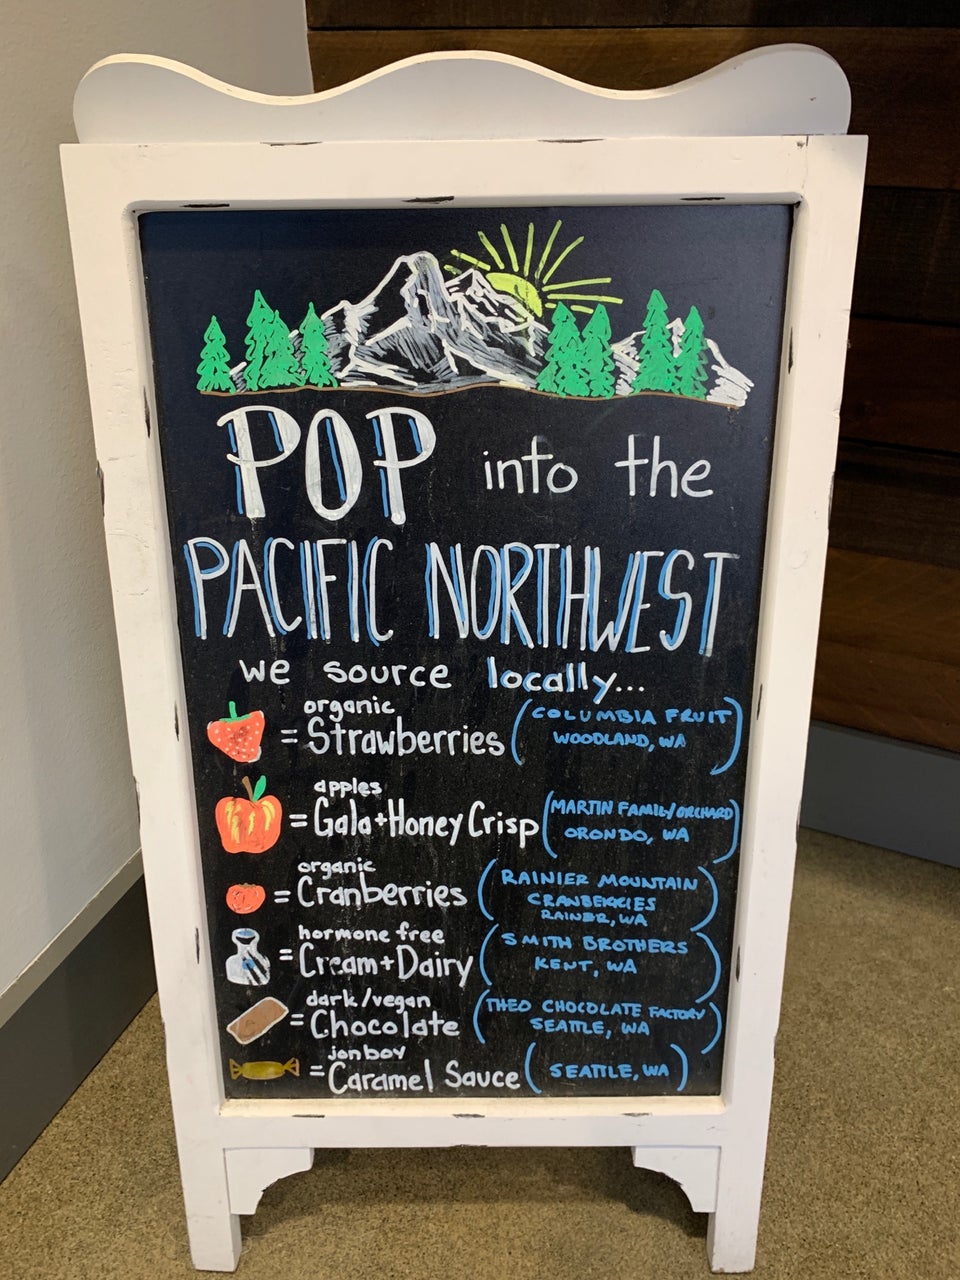 POP into the
PACIFIC NORTHWEST
we source locally...
organic
= Strawberries (COLUMBIA FRUIT
WOODLAND, WA)
apples
= Gala + Honey Crisp (MARTIN FAMILY ORCHARD
ORONDO, WA)
organic
= Cranberries (RAINIER MOUNTAIN
CRANBERRIES
RAINER, WA)
hormone free
= Cream + Dairy (SMITH BROTHERS
KENT, WA)
dark/vegan
= Chocolate (THEO CHOCOLATE FACTORY
SEATTLE, WA)
jonboy
= Caramel Sauce (SEATTLE, WA)